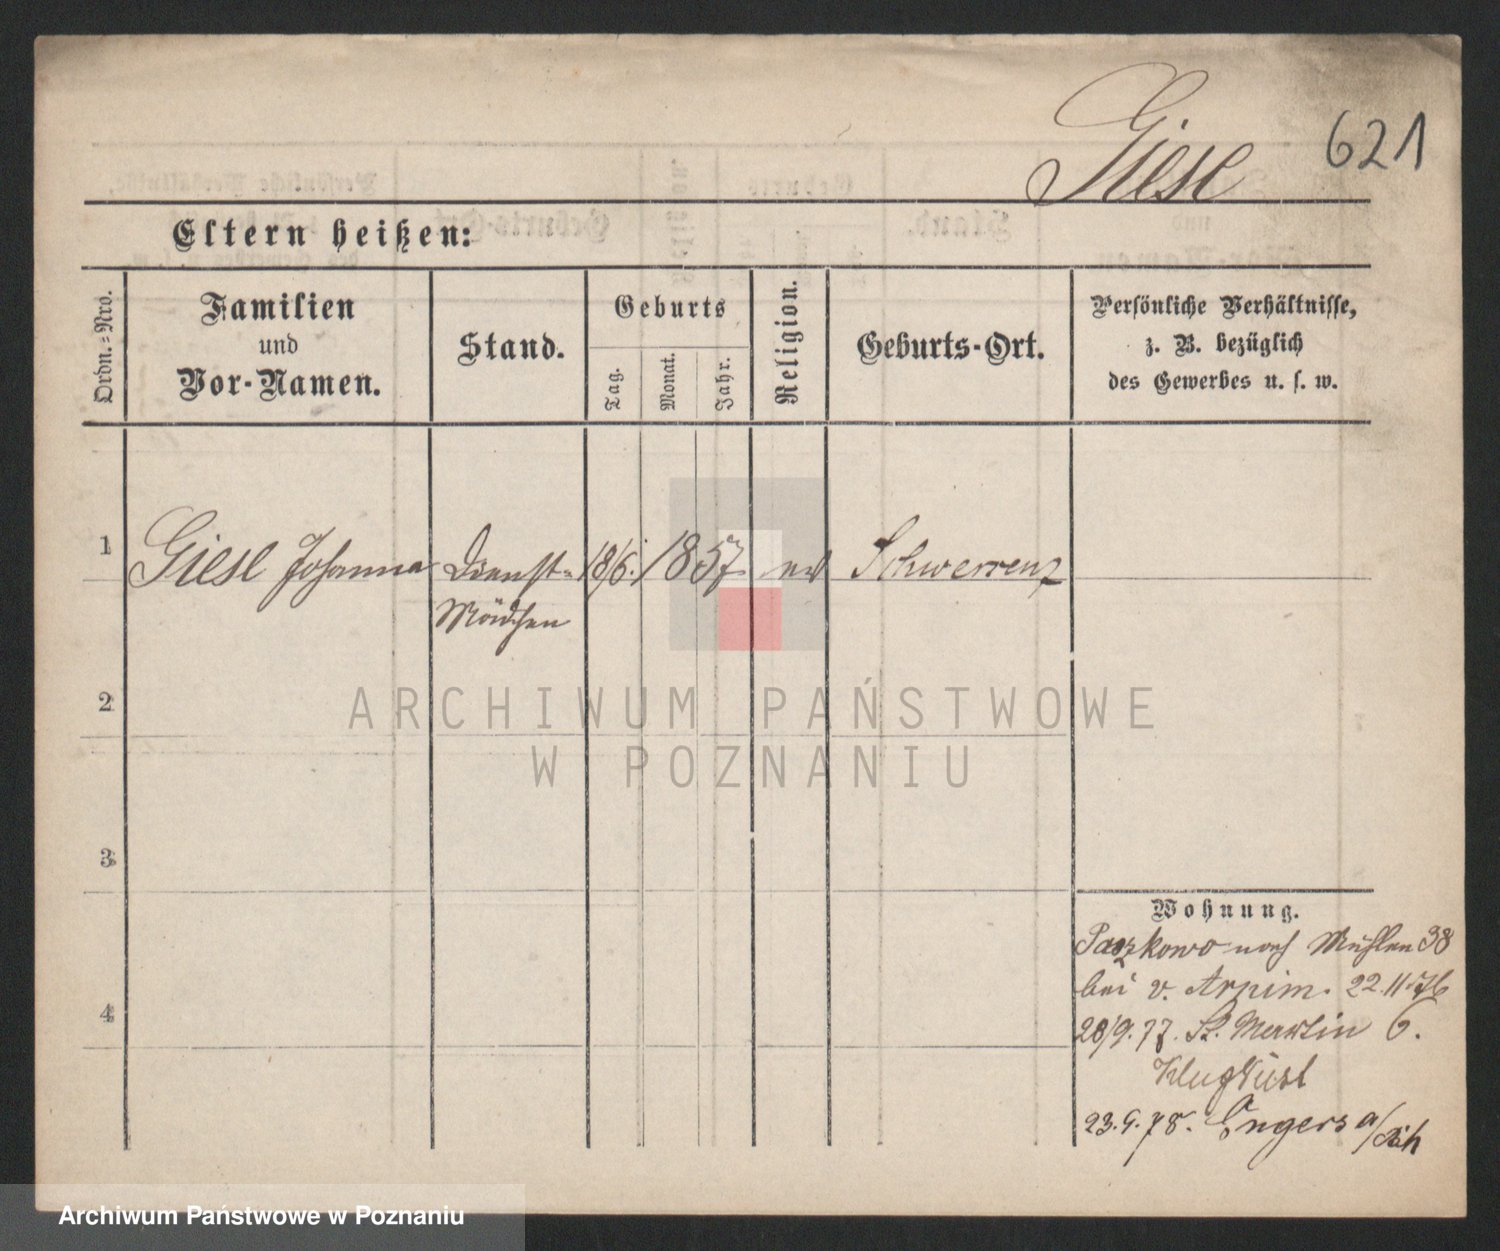 Giese 621
Eltern heißen:
Ordn.=Nro.
Familien
und
Vor-Namen.
Stand.
Geburts
Tag.
Monat.
Jahr.
Religion.
Geburts-Ort.
Persönliche Verhältnisse,
z. B. bezüglich
des Gewerbes u. s. w.
1 Giese Johanna Dienst= 18/6. 1857. Schwersenz
Mädchen
2
3
4
Wohnung.
Paczkowo nach Mühlen 38
bei v. Arnim. 22.11.76
28/9.77. St. Martin 6.
23.9.78. Engers a/Rh
ARCHIWUM PAŃSTWOWE
W POZNANIU
Archiwum Państwowe w Poznaniu